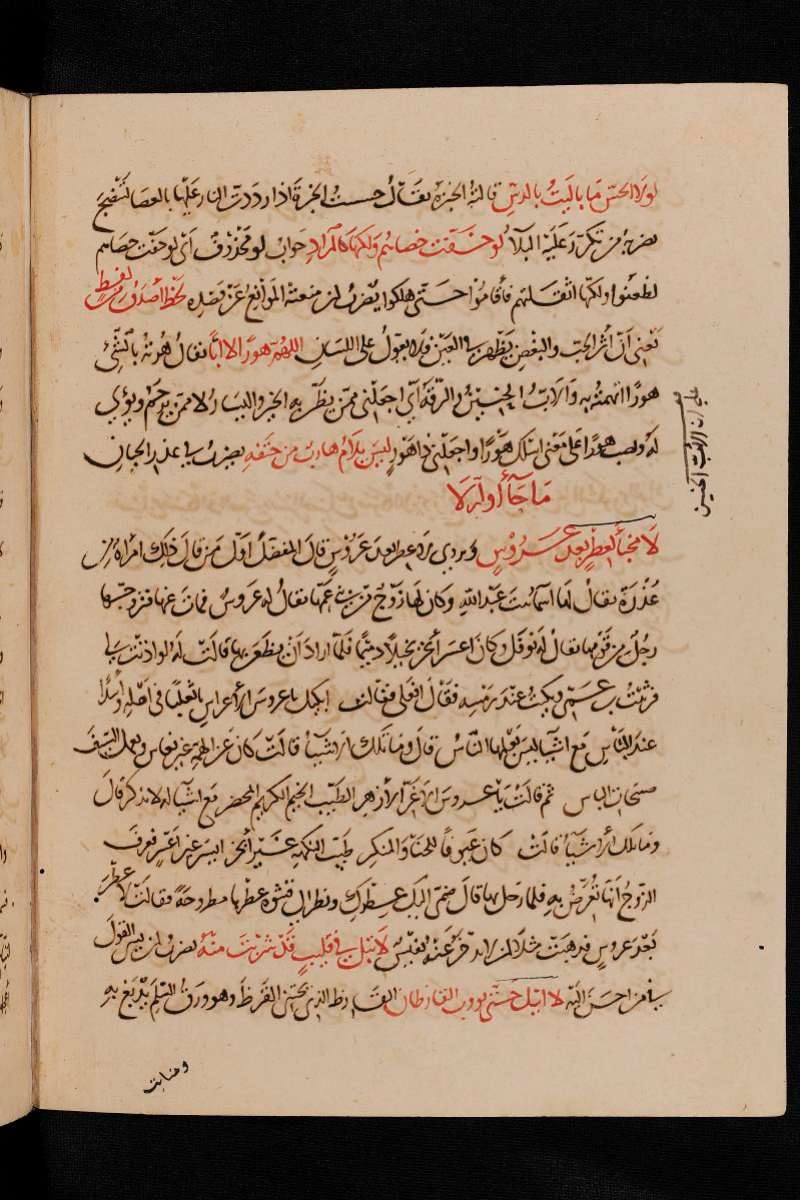 لولا الحسّ ما باليت بالدسّ قالته الخبزة يقال حسست الخبزة اذا رددت النار عليها بالعصا لتنضج
يضرب لمن تكرر عليه البلاء لو خفت خصاتم ولكنها كالمزاد جواب لو محذوف اى لو خفت خصاهم
لظعنوا ولكنها اثقلتهم فأقاموا حتى هلكوا يضرب لمن منعته الموانع عن قصده لحظ اصدق من لفظ
يعني ان اثر الحب والبغض يظهر في العين فلا يعول على اللسان اللهم هورا لا ايّا يقال هرته بالشئ
هورا اتهمته به والايّة الحنين والرقة اي اجعلني ممن يظن به الخير واليسار لا ممن يرحم ويؤي
له ونصب هورا على معنى اسئلك هورا او اجعلني ذا هور ليس يلام هارب من حتفه يضرب في عذر الجبان
ما جاء أوله لا
لا مخبأ لعطر بعد عروس ويروى لا عطر بعد عروس قال المفضل اول من قال ذلك امرأة من
عذرة يقال لها اسماء بنت عبد الله وكان لها زوج من بني عمها يقال له عروس فمات عنها فتزوجها
رجل من قومها يقال له نوفل وكان اعسر أبخر بخيلا دميما فلما اراد أن يظعن بها قالت له لو اذنت لي
فرثيت ابن عمي وبكيت عند رمسه فقال افعلي فقالت ابكيك يا عروس الأعراس يا ثعلبا في اهله وأسدا
عند الباس مع اشياء ليس يعلمها الناس قال وما تلك الاشياء قالت كان عن الهمة غير نعاس ويعمل السيف
صبيحات الباس ثم قالت يا عروس الاغر الأزهر الطيب الخيم الكريم المحضر مع اشياء له لا تذكر قال
وما تلك الأشياء قالت كان عيوفا للخنا والمنكر طيب النكهة غير أبخر ايسر غير اعسر فعرف
الزوج أنها تعرض به فلما رحل بها قال ضمي اليك عطرك ونظر الى قشوة عطرها مطروحة فقالت لا عطر
بعد عروس فذهبت مثلا لمن لا يدخر عنه نفيس لا تبل في قليب قد شربت منه يضرب لمن يسي القول
في من احسن اليه لا اتيك حتى يؤوب القارظان القارظ الذي يجتني القرظ وهو ورق السلم يدبغ به
ومنابت